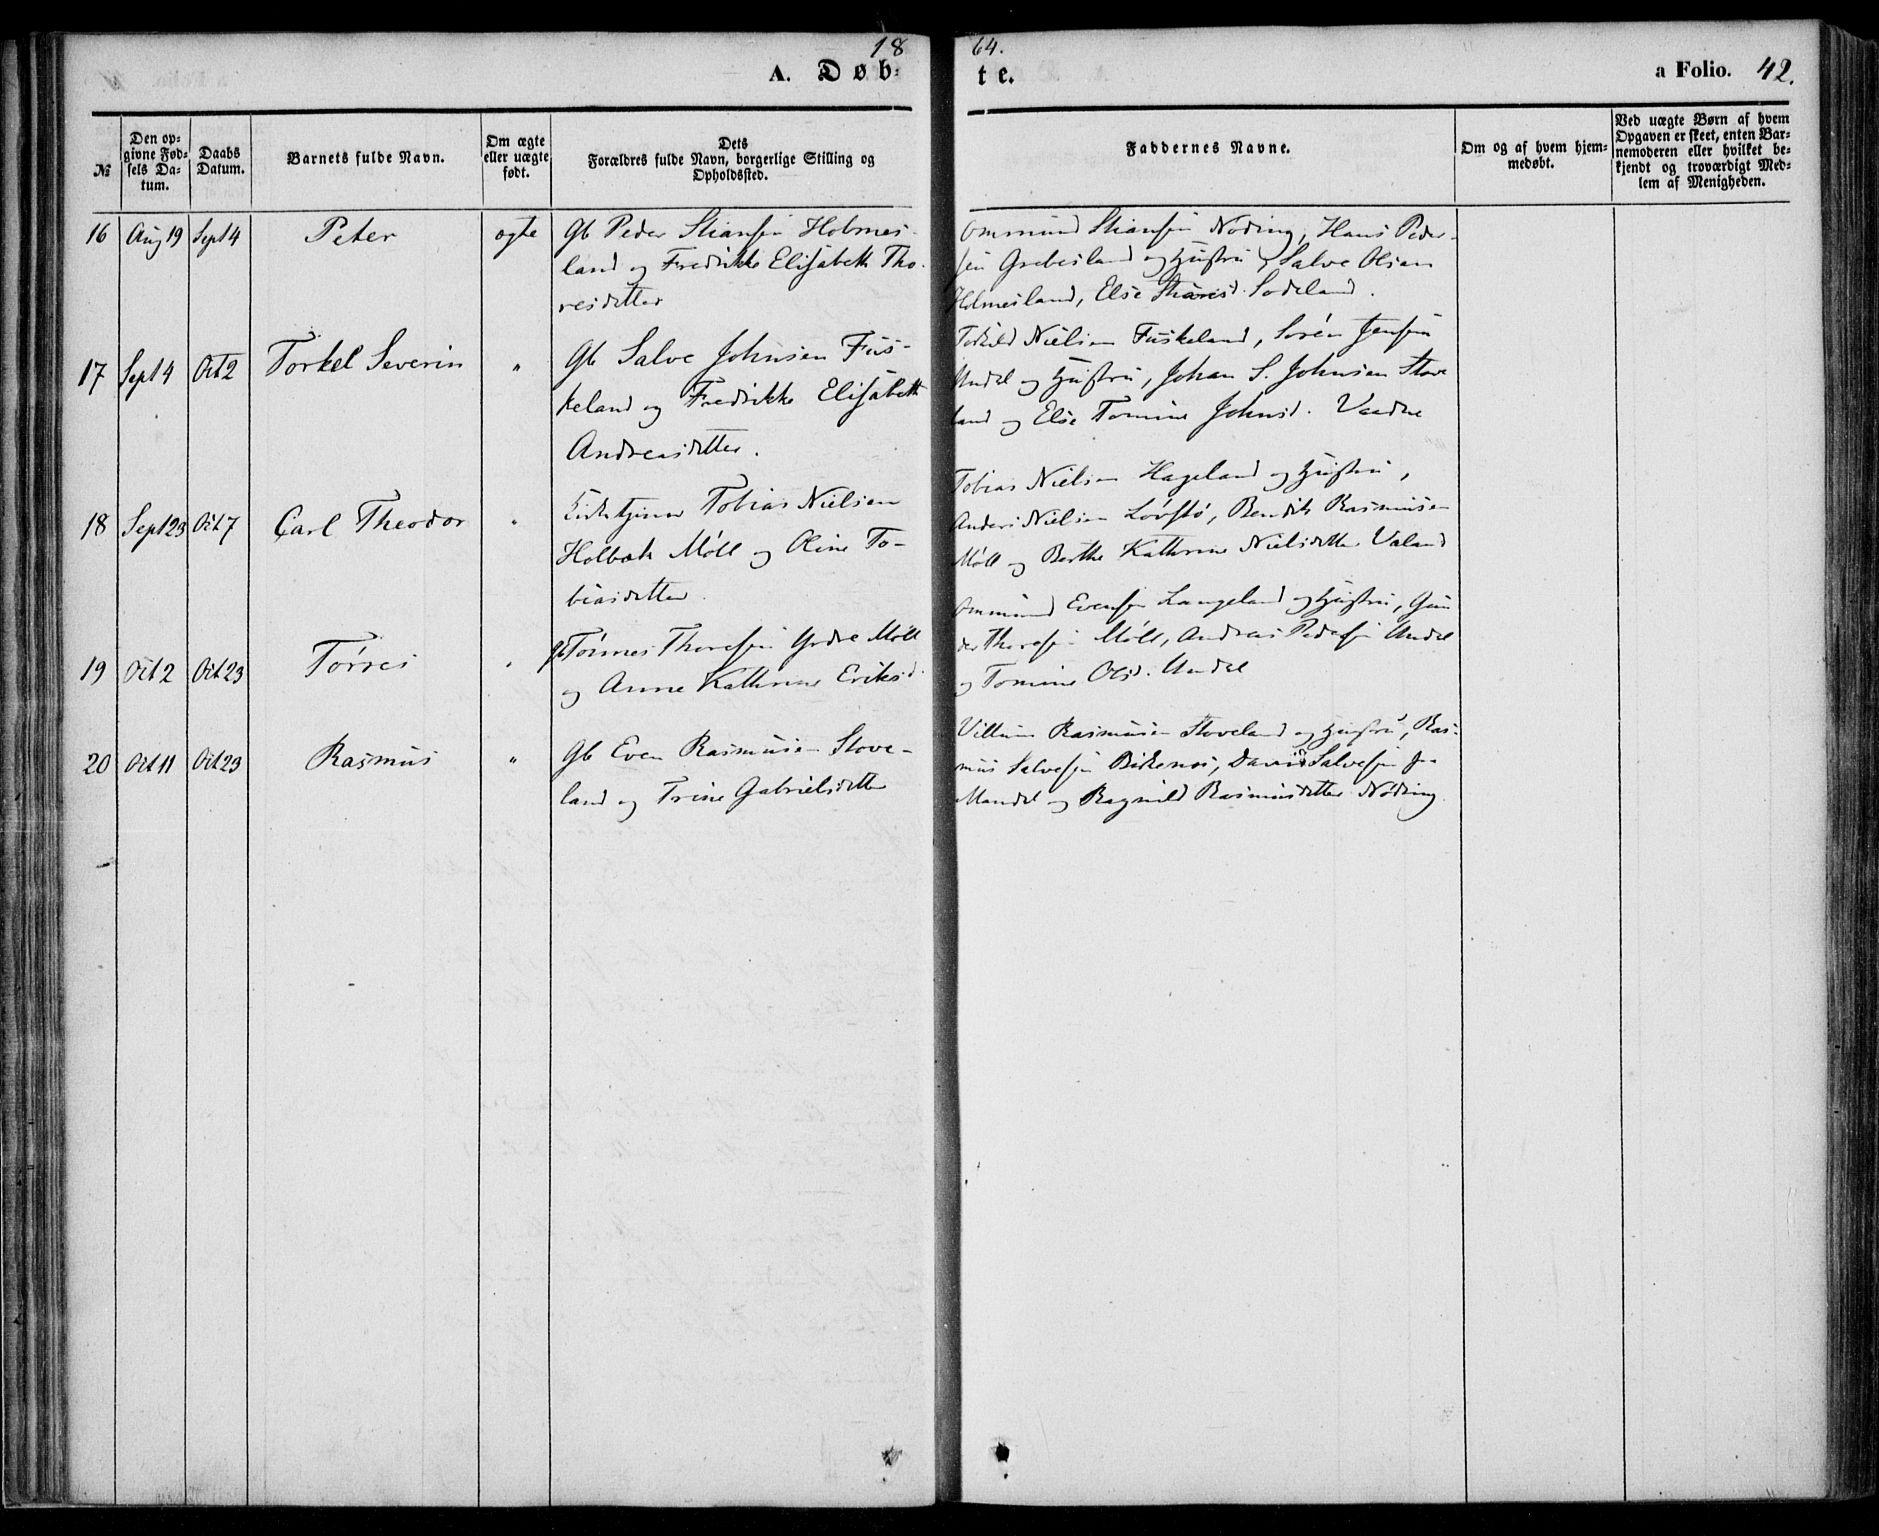 1864.
A. Døbte.
a Folio. 42.
№
Den opgivne Fødsels Datum.
Daabs Datum.
Barnets fulde Navn.
Om ægte eller uægte født.
Dets Forældres fulde Navn, borgerlige Stilling og Opholdssted.
Faddernes Navne.
Om og af hvem hjemmedøbt.
Ved uægte Børn af hvem Opgaven er skeet, enten Barnemoderen eller hvilket bekjendt og troværdigt Medlem af Menigheden.
16 Aug 19 Sept 4 Peter ægte
Gb Peder Stiansen Holmes-
land og Fredrikke Elisabeth Tho-
resdatter
Ommund Stiansen Nøding, Hans Peder-
sen Grebesland og Hustru, Salve Olsen
Holmesland, Else d. Sodeland.
17 Sept 4 Oct 2 Torkel Severin "
Gb Salve Johnsen Fus-
keland og Fredrikke Elisabeth
Andreasdatter.
Nielsen Fuskeland, Sørén Jensen
Undel og Hustru, Johan S. Johnsen Stove
land og Else Tomine Johnsd. Vaadne
18 Sept 23 Oct 7 Carl Theodor "
Tobias Nielsen
Holbæk Møll og Oline To-
biasdatter.
Tobias Nielsen Hageland og Hustru,
Anders Nielsen Lovstø, Bendik Rasmusen
Møll og Berthe Kathrine Nielsdatter Valand
19 Oct 2 Oct 23 Tørres "
Gb Tønnes Thoresen Ydre Møll
og Anne Kathrine Eriksd.
Ommund Evensen Langeland og Hustru, Gun
der Thoresen Møll, Andreas Pedersen Undel
og Tomine Olsd. Undel
20 Oct 11 Oct 23 Rasmus "
Gb Even Rasmusen Stove-
land og Trine Gabrielsdatter
Villum Rasmusen Stoveland og Hustru, Ras-
mus Salvesen Birkenes, David Salvesen fra
Mandal og Ragnild Rasmusdatter Nøding.